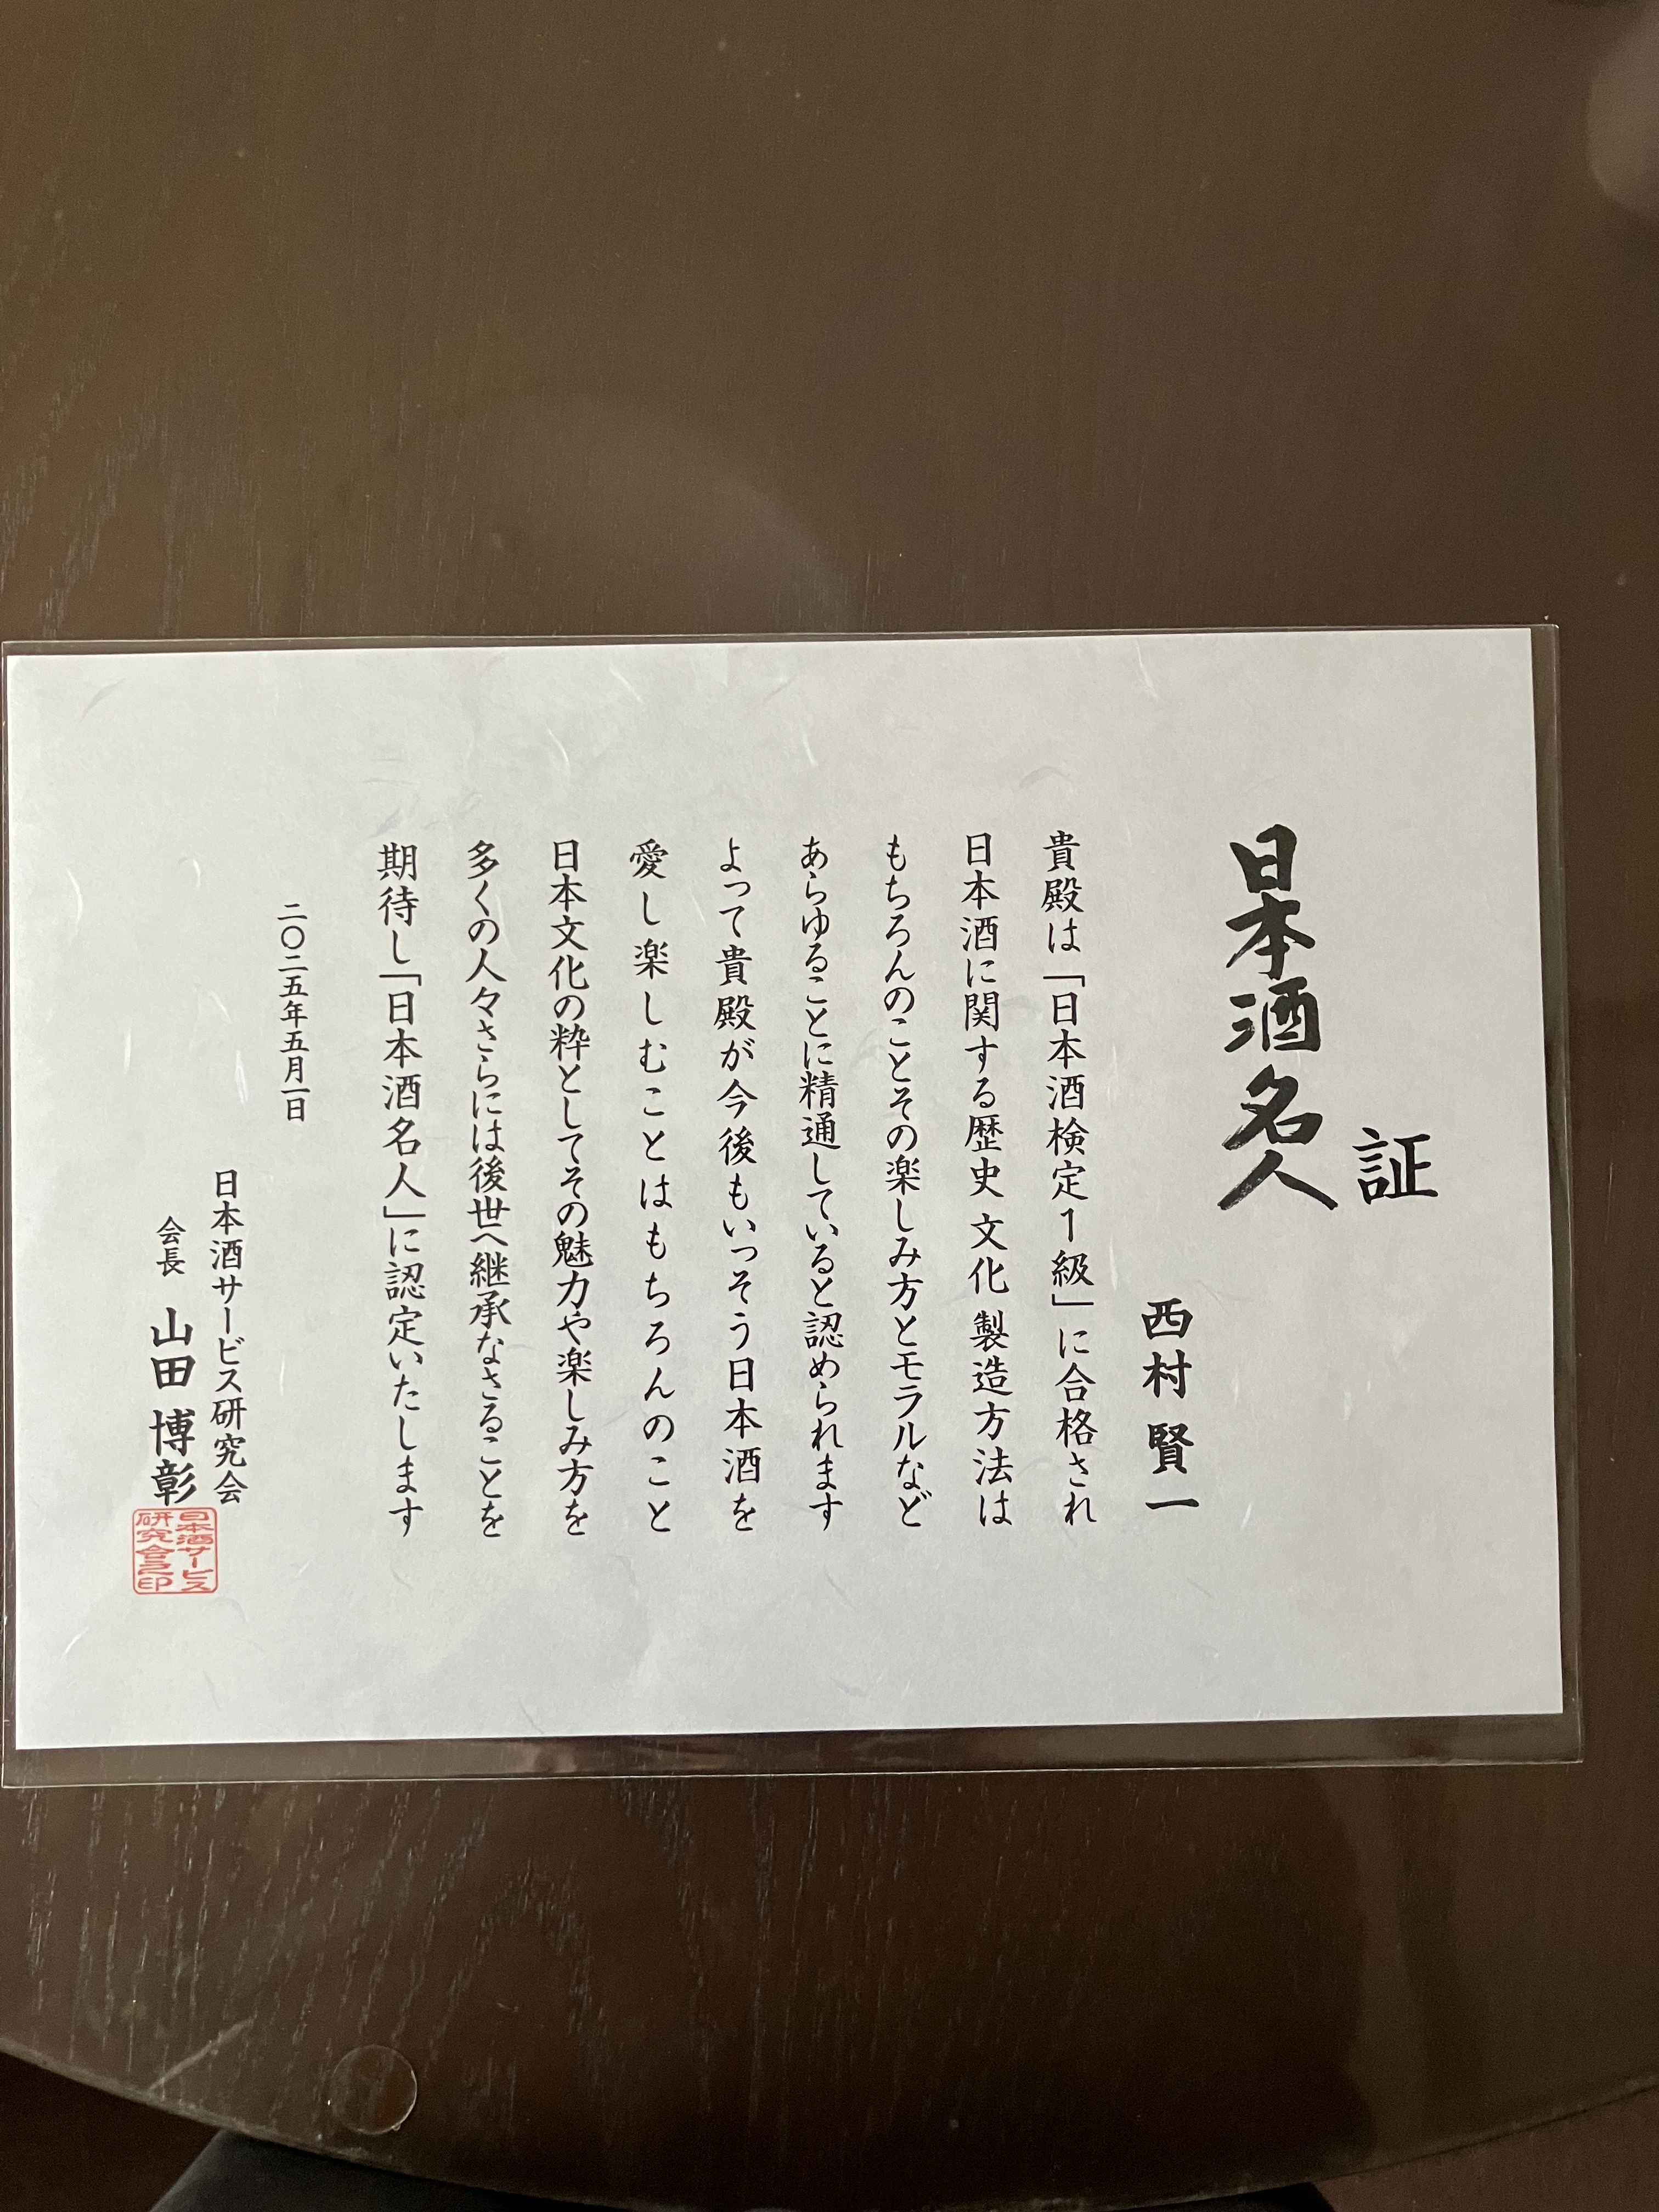 日本酒名人
証
西村 賢一
貴殿は「日本酒検定1級」に合格され
日本酒に関する歴史 文化 製造方法は
もちろんのことその楽しみ方とモラルなど
あらゆることに精通していると認められます
よって貴殿が今後もいっそう日本酒を
愛し楽しむことはもちろんのこと
日本文化の粋としてその魅力や楽しみ方を
多くの人々さらには後世へ継承なさることを
期待し「日本酒名人」に認定いたします
二〇二五年五月一日
日本酒サービス研究会
会長 山田 博彰
日本酒サービス
研究会之印